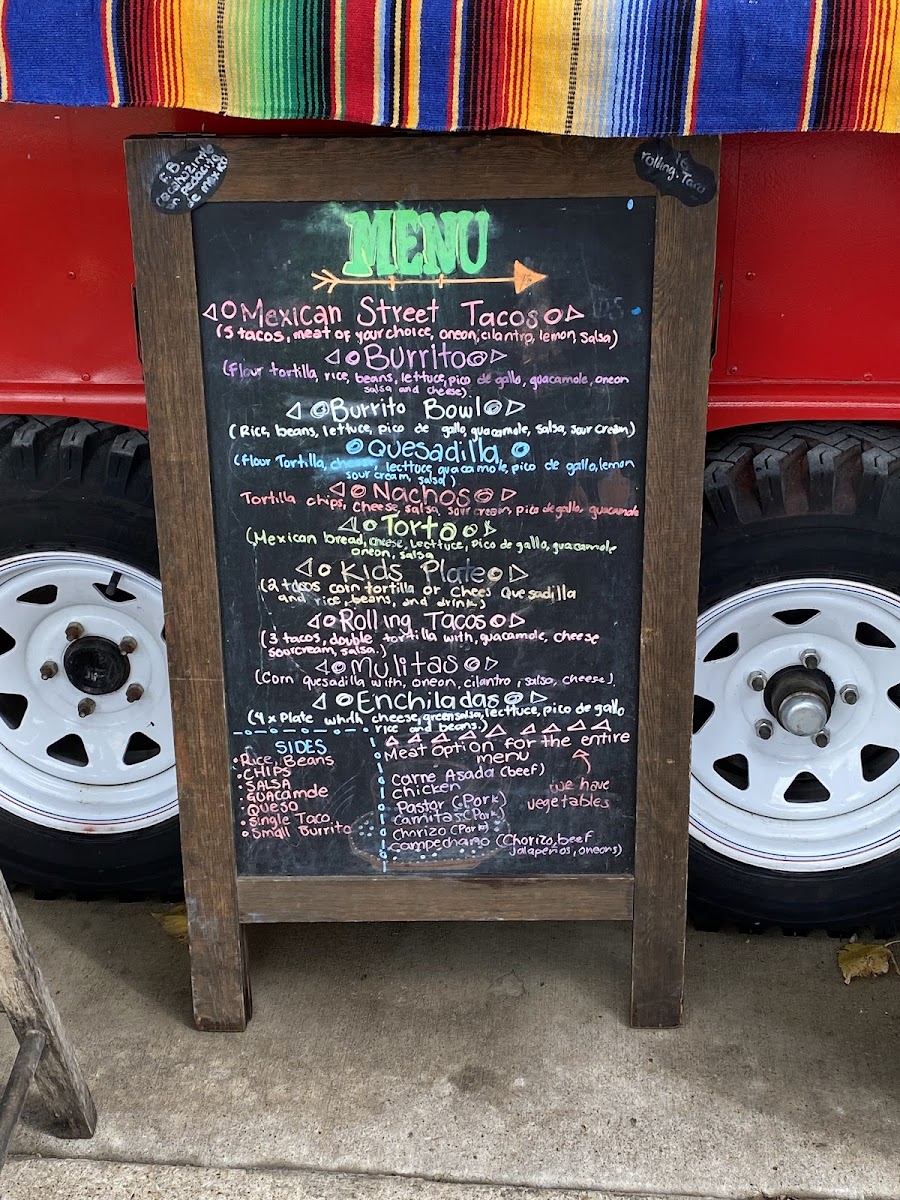 F.B.
cocoluzinlo
un pedacito
de mexico
IG
rolling.Taco
MENU
Mexican Street Tacos
(5 tacos, meat of your choice, oneon, cilantro, lemon, salsa)
Burrito
(flour tortilla, rice, beans, lettuce, pico de gallo, guacamole, oneon
salsa and cheese)
Burrito Bowl
(Rice, beans, lettuce, pico de gallo, guacamole, salsa, sour cream)
Quesadilla
(flour Tortilla, cheese, lecttuce, guacamole, pico de gallo, lemon
sour cream, salsa)
Nachos
Tortilla chips, cheese, salsa, sour cream, pico de gallo, guacamole
Torta
(Mexican bread, cheese, Lecttuce, Pico de gallo, guacamole
oneon, salsa
Kids Plate
(2 tacos corn tortilla or chees Quesadilla
and rice, beans, and drink)
Rolling Tacos
(3 tacos, double tortilla with, guacamole, cheese
sourcream, salsa.)
Mulitas
(Corn quesadilla with, oneon, cilantro, salsa, cheese).
Enchiladas
(4 x Plate whith cheese, green salsa, lecttuce, pico de gallo
rice and beans.)
SIDES
•Rice, Beans
•CHIPS
•SALSA
•GUACAMOLE
•QUESO
•Single Taco
•Small Burrito
Meat option for the entire
menu
carne Asada (beef)
chicken
Pastor (Pork)
Carnitas (Pork)
chorizo (Pork)
campechano (Chorizo, beef
Jalapeños, oneons)
we have
vegetables